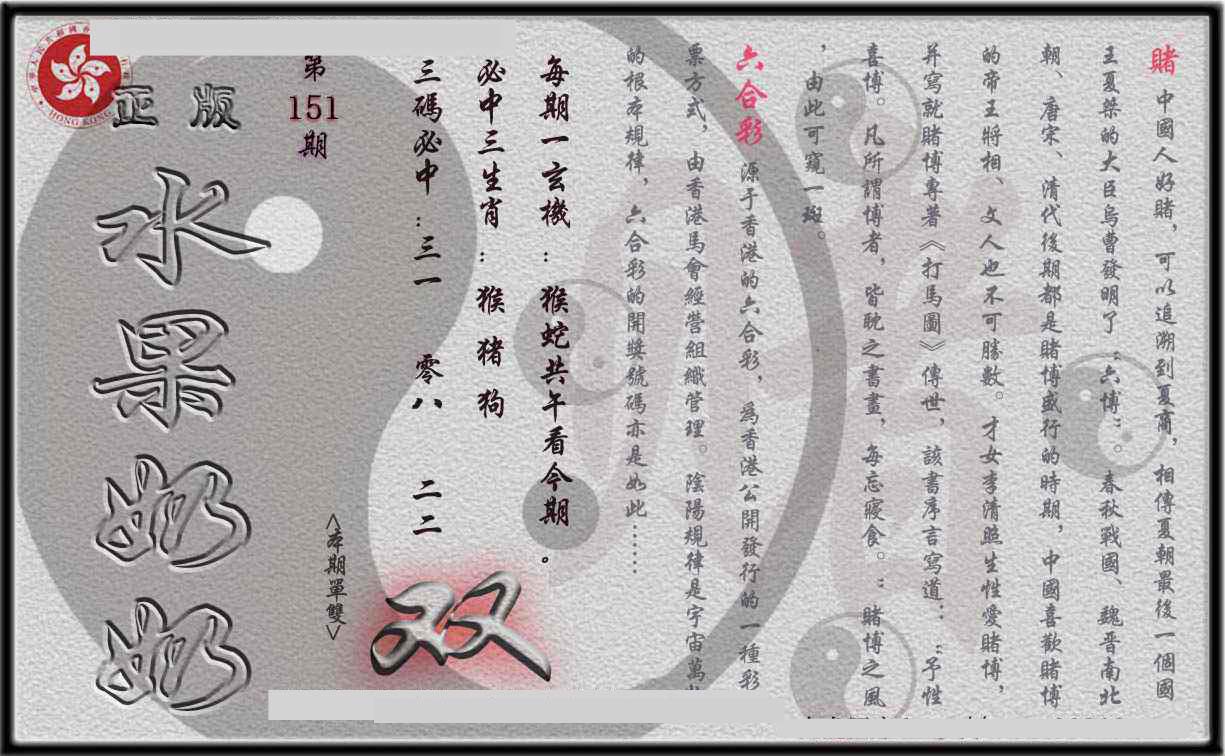 賭 中國人好賭，可以追溯到夏商，相傳夏朝最後一個國
王夏桀的大臣烏曹發明了“六博”。春秋戰國、魏晋南北
朝、唐宋、清代後期都是賭博盛行的時期，中國喜歡賭博
的帝王將相、文人也不可勝數。才女李清照生性愛賭博，
并寫就賭博專著《打馬圖》傳世，該書序言寫道：“予性
喜博。凡所謂博者，皆耽之書畫，每忘寢食。”賭博之風
，由此可窺一斑。
六合彩 源于香港的六合彩，爲香港公開發行的一種彩
票方式，由香港馬會經營組織管理。陰陽規律是宇宙萬
的根本規律，六合彩的開獎號碼亦是如此……
每期一玄機：猴蛇共午看今期。
必中三生肖：猴 猪 狗
三碼必中：三一 零八 二二
<本期單雙>
双
第
151
期
正版
水果奶奶
HONG KONG